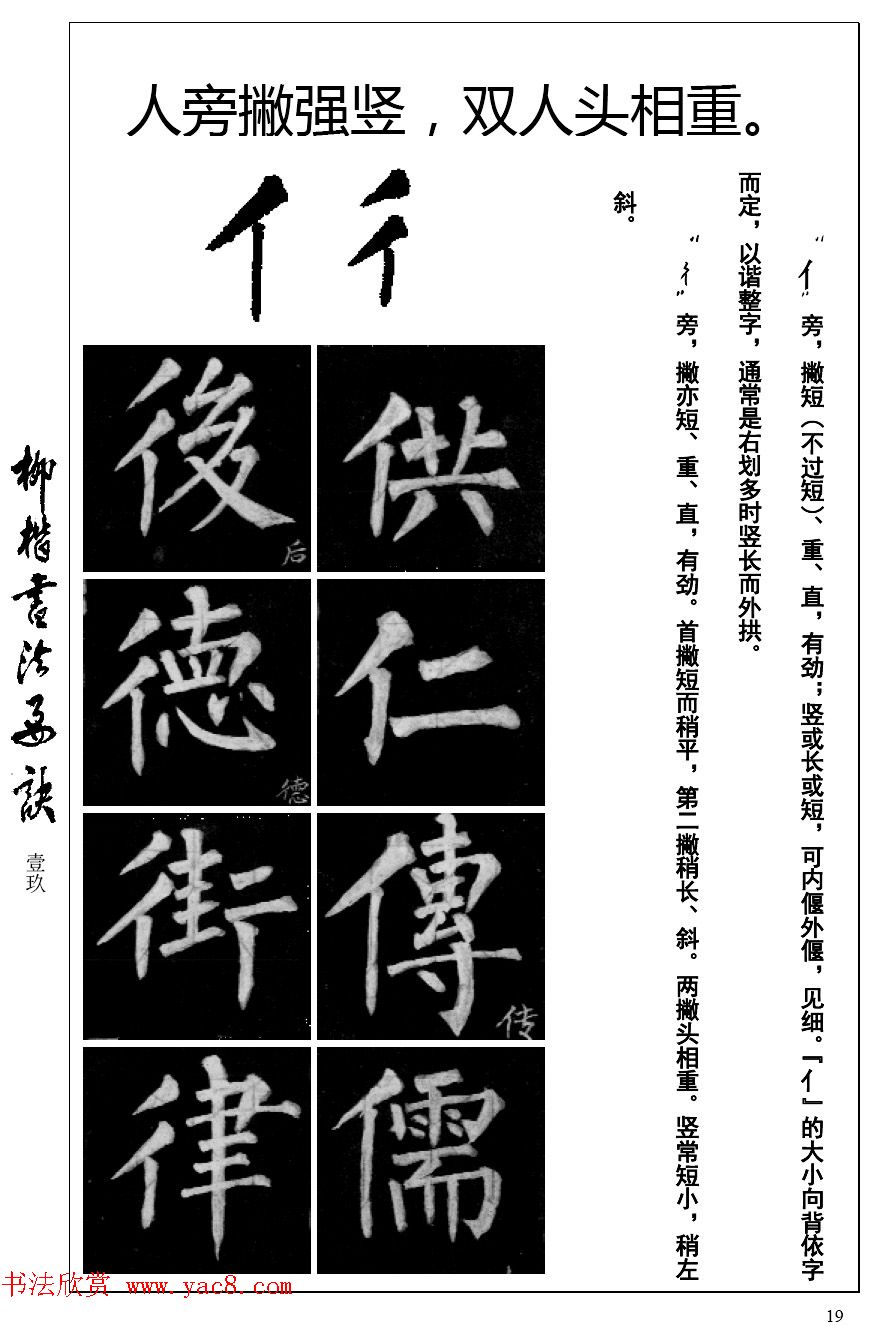 人旁撇强竖，双人头相重。
亻彳
“亻”旁，撇短（不过短）、重、直，有劲；竖或长或短，可内偃外偃，见细。『亻』的大小向背依字
而定，以谐整字，通常是右划多时竖长而外拱。
“彳”旁，撇亦短、重、直，有劲。首撇短而稍平，第二撇稍长、斜。两撇头相重。竖常短小，稍左
斜。
後 后
供
德 德
仁
街
傳 传
律
儒
柳楷書法要訣
壹玖
书法欣赏 www.yac8.com
19